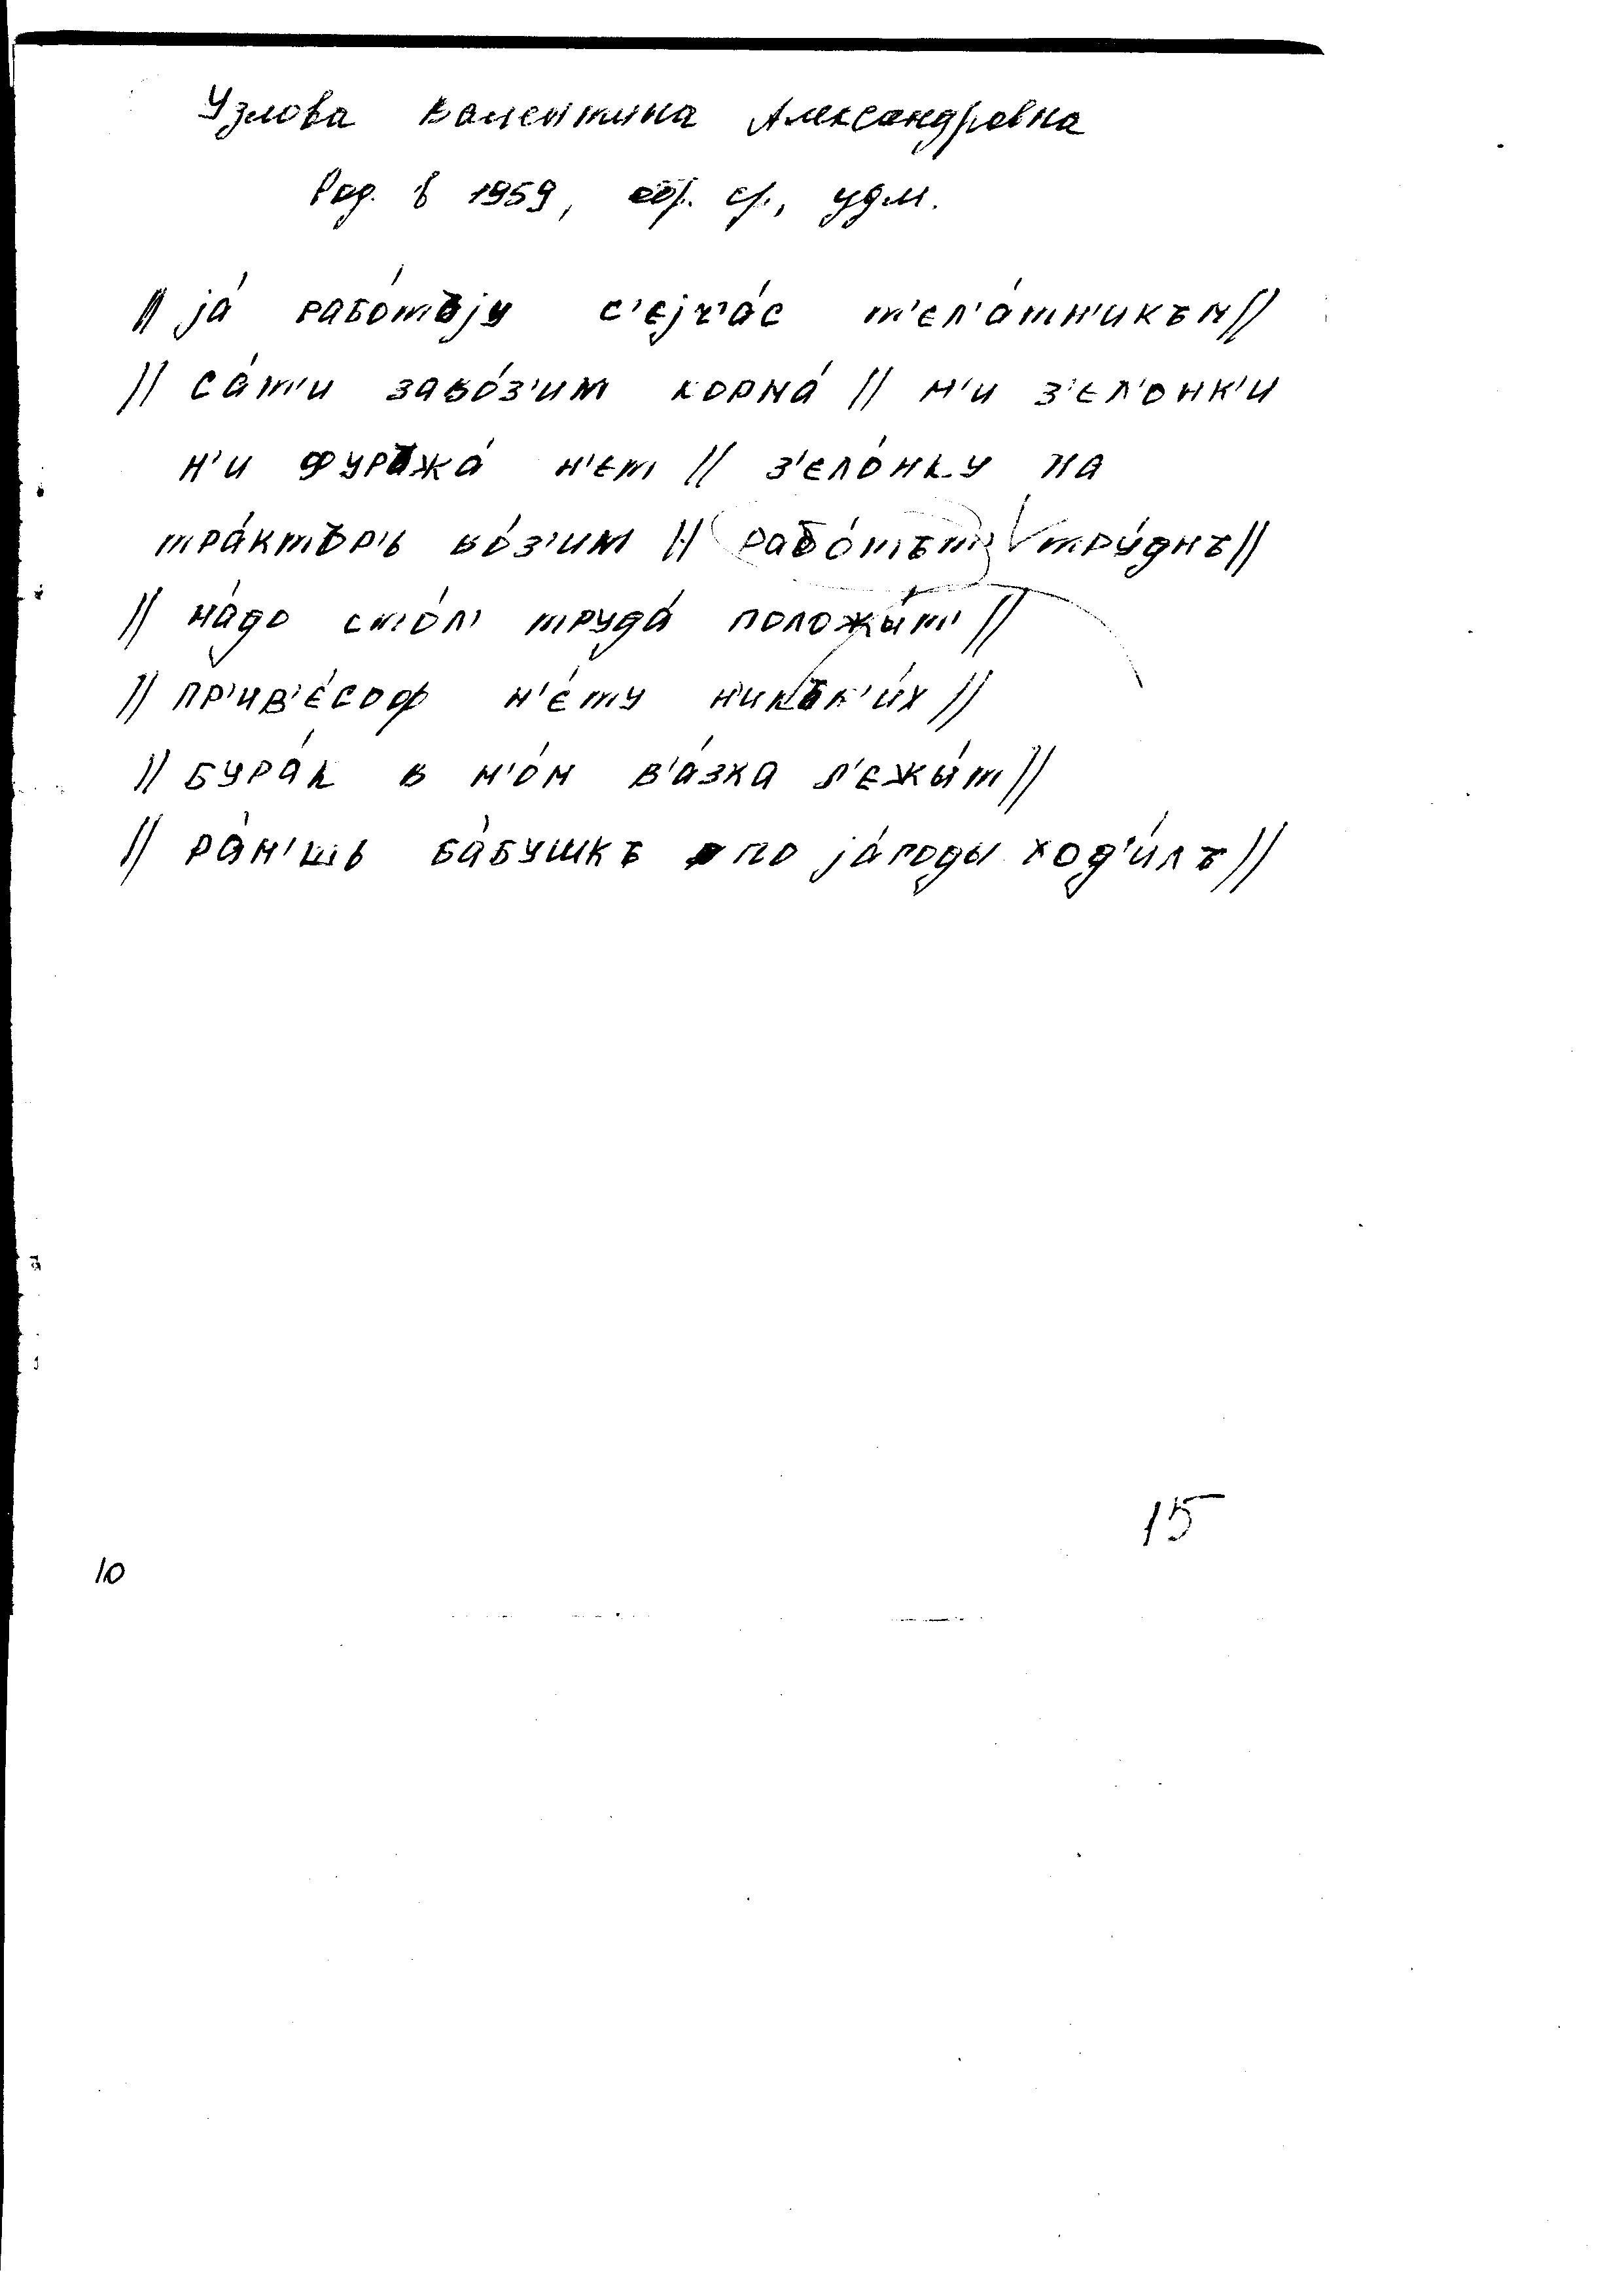 Узлова Валентина Александровна
Род. в 1959, обр. ср., удм.
// jа́ рабо́тъjу с'еjч'а́с т'ел'а́тн'икъм //
// са́м'и заво́з'им корма́ // н'и з'ел'о́нк'и
н'и фуража́ н'ет // з'ело́нку на
тра́ктър'ь во́з'им // рабо́тът' тру́днъ //
// на́до сто́л' труда́ положы́т' //
// пр'ив'е́соф н'е́ту н'икък'и́х //
// бура́к в н'о́м в'а́зка л'ежы́т //
// ра́н'шь ба́бушкъ по jа́годы ход'и́лъ //
15
10